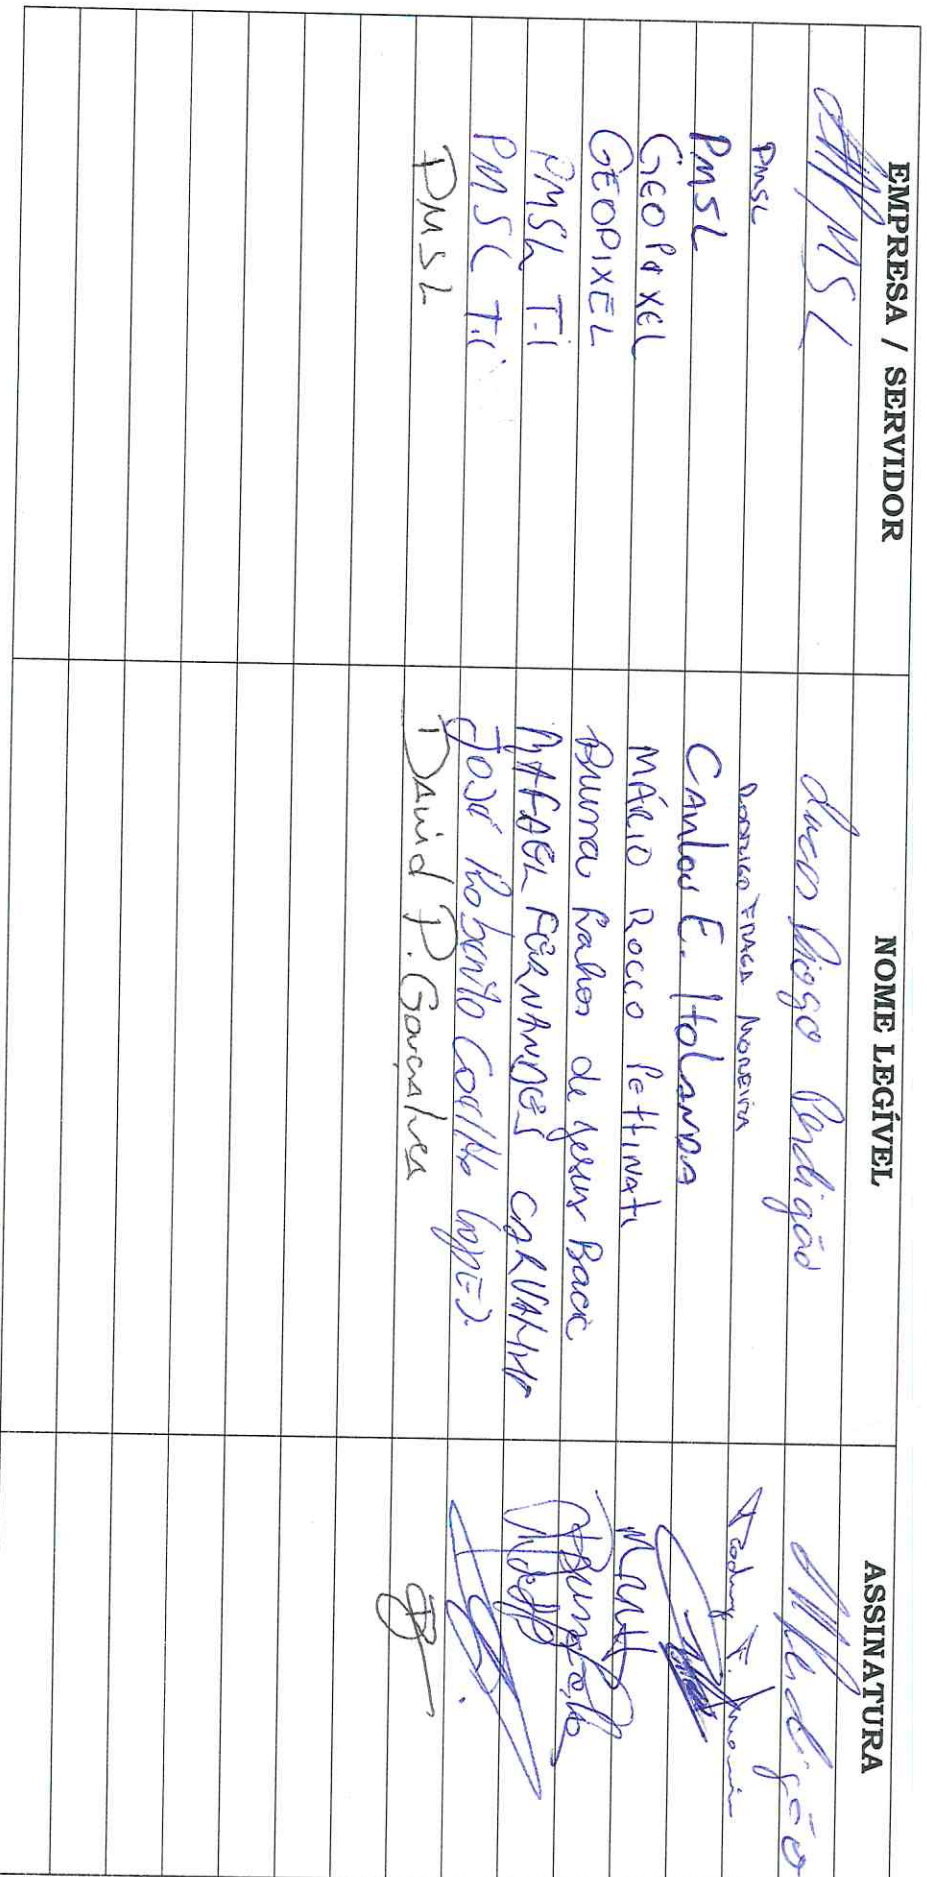 EMPRESA / SERVIDOR NOME LEGÍVEL ASSINATURA
PMSL Lucas Diogo Perdigão
PMSL Rodrigo Fraga Moreira Rodrigo F.
PMSL Carlos E. Holanda
GEOPIXEL MÁRIO ROCCO PettINATI
GEOPIXEL Bruna de Jesus
PMSL T.i RAFAEL FERNANDES CARVALHO
PMSL T.i José Roberto Coelho
PMSL David P. Gonçalves